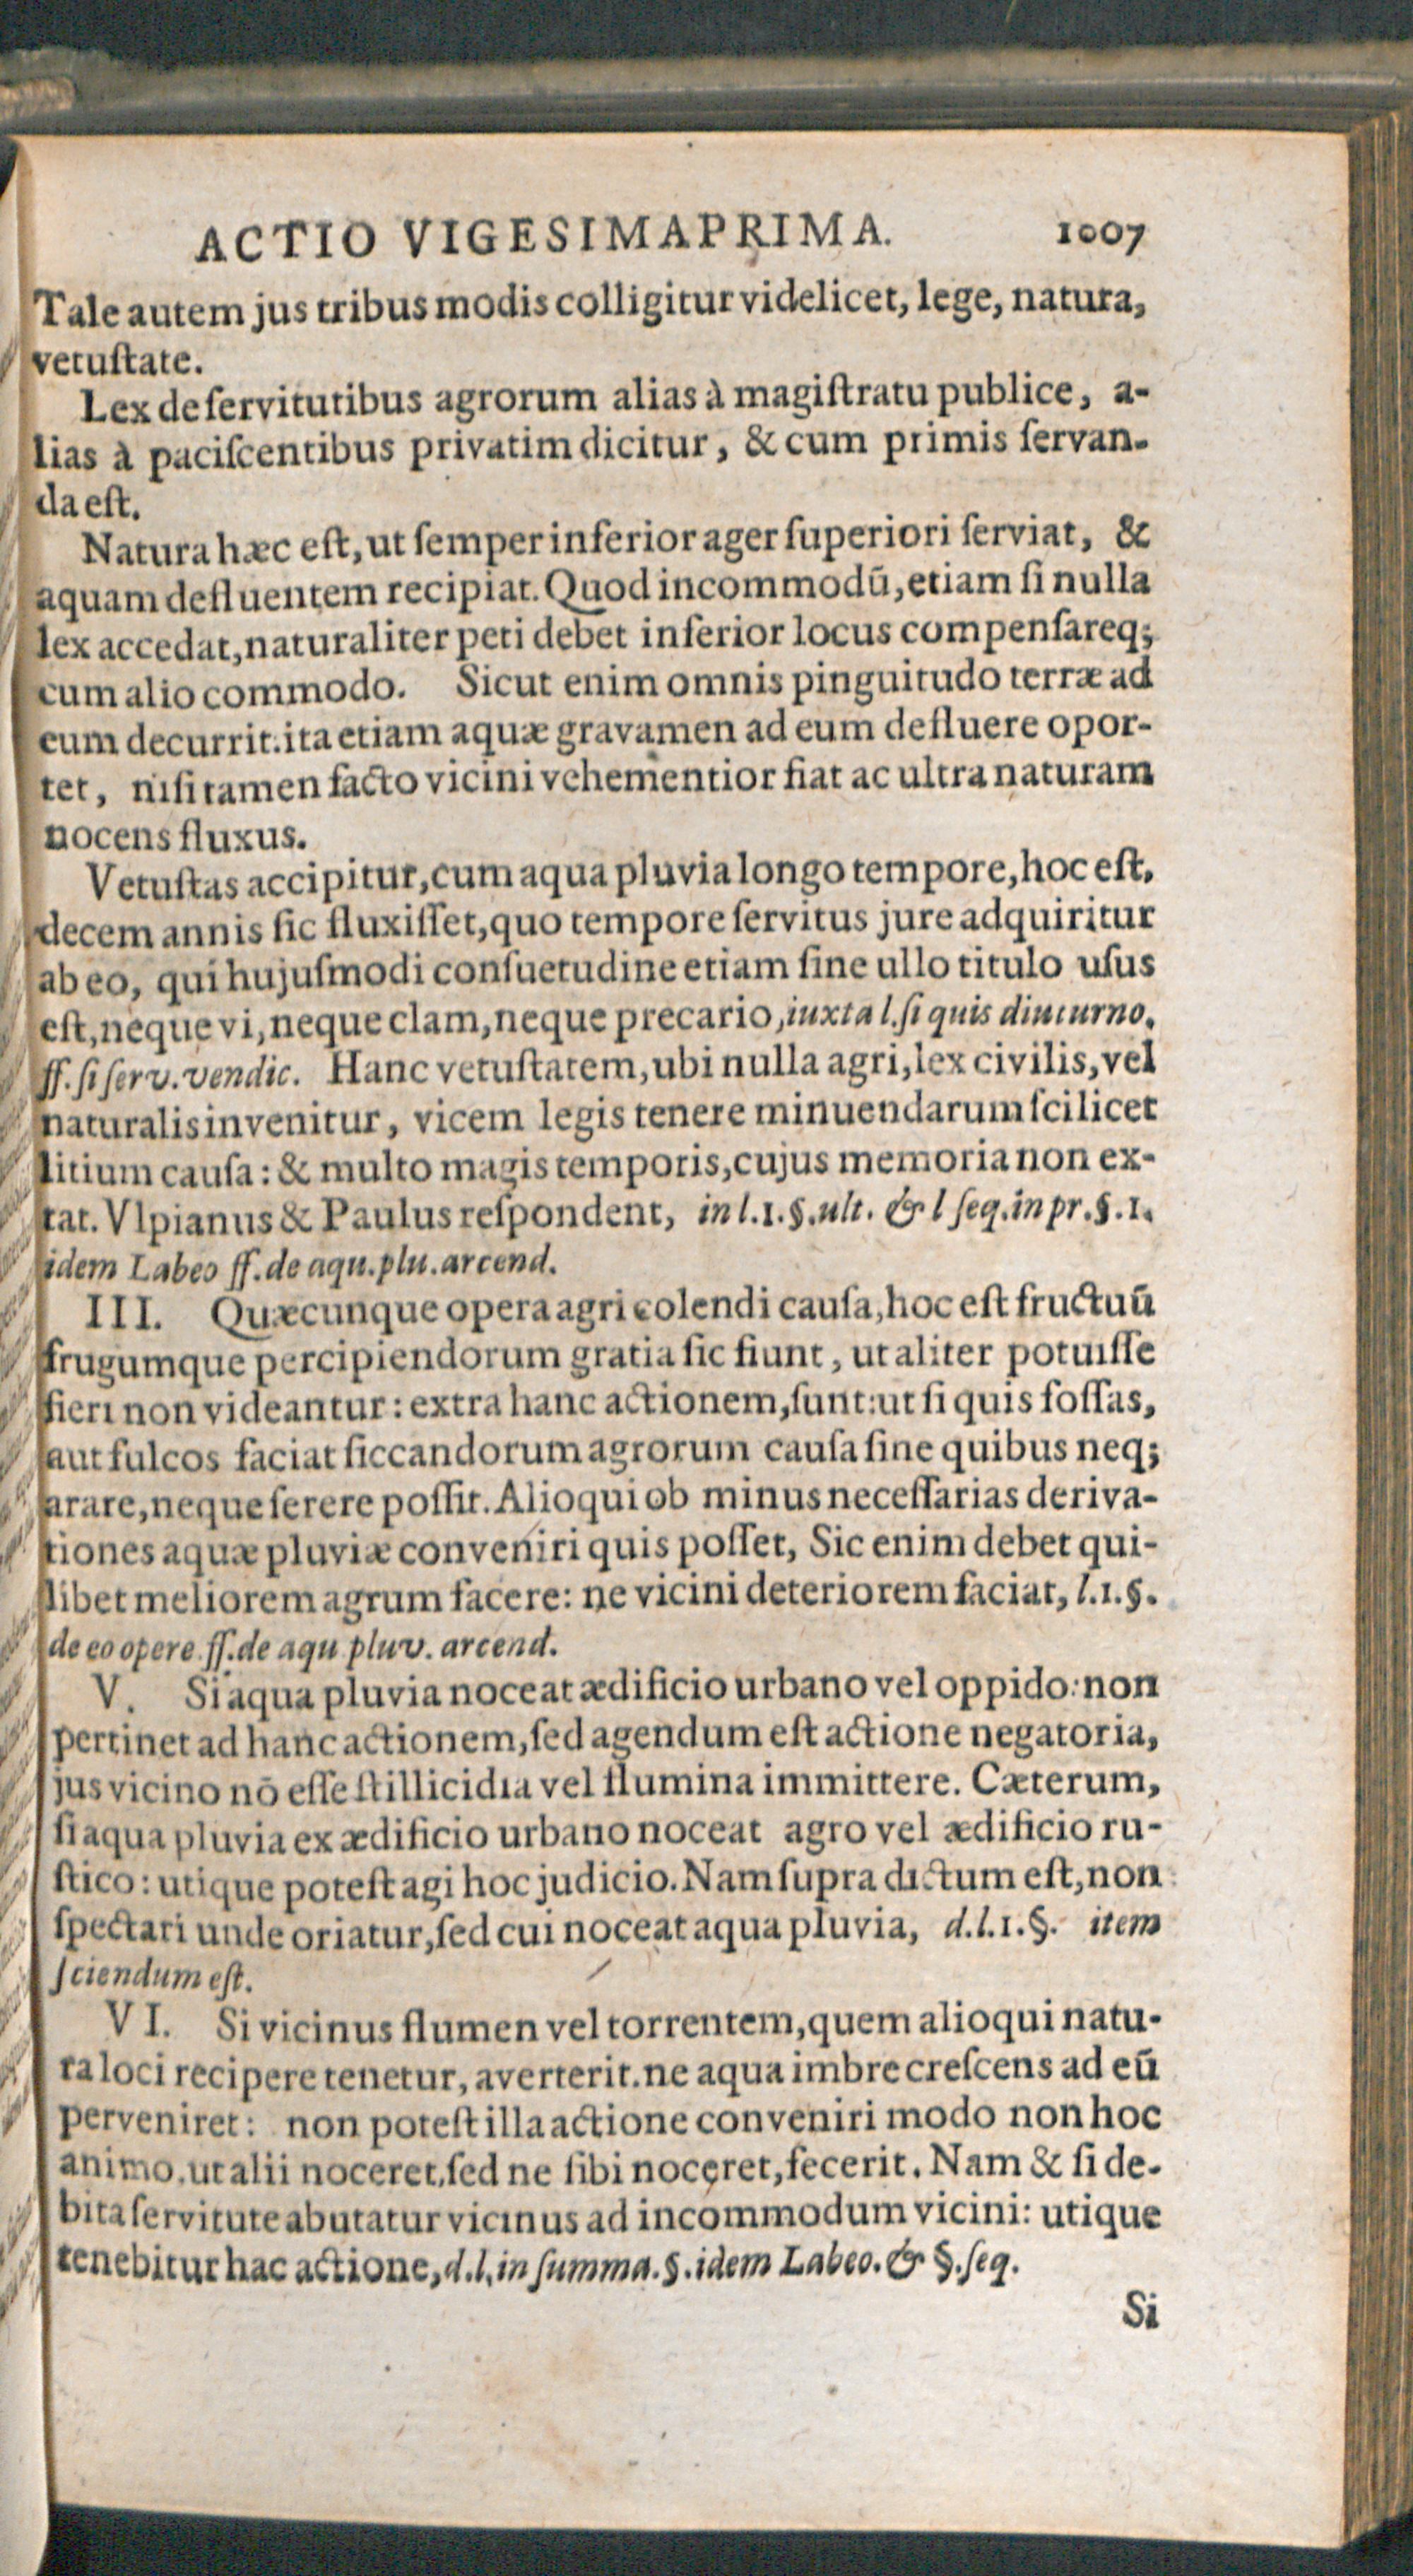 ACTIO VIGESIMAPRIMA. 1007
Tale autem jus tribus modis colligitur videlicet, lege, natura,
vetuſtate.
Lex de ſervitutibus agrorum alias à magiſtratu publice, a-
lias à paciſcentibus privatim dicitur, & cum primis ſervan-
da eſt.
Natura hæc eſt, ut ſemper inferior ager ſuperiori ſerviat, &
aquam defluentem recipiat. Quod incommodū, etiam ſi nulla
lex accedat, naturaliter peti debet inferior locus compenſareq;
cum alio commodo. Sicut enim omnis pinguitudo terræ ad
eum decurrit: ita etiam aquæ gravamen ad eum defluere opor-
tet, niſi tamen facto vicini vehementior fiat ac ultra naturam
nocens fluxus.
Vetuſtas accipitur, cum aqua pluvia longo tempore, hoc eſt,
decem annis ſic fluxiſſet, quo tempore ſervitus jure adquiritur
ab eo, qui hujuſmodi conſuetudine etiam ſine ullo titulo uſus
eſt, neque vi, neque clam, neque precario, iuxta l. ſi quis diuturno.
ff. ſi ſerv. vendic. Hanc vetuſtatem, ubi nulla agri, lex civilis, vel
naturalis invenitur, vicem legis tenere minuendarum ſcilicet
litium cauſa: & multo magis temporis, cujus memoria non ex-
tat. Vlpianus & Paulus reſpondent, in l. 1. §. ult. & l ſeq. in pr. §. 1.
idem Labeo ff. de aqu. plu. arcend.
III. Quæcunque opera agri colendi cauſa, hoc eſt fructuū
frugumque percipiendorum gratia ſic fiunt, ut aliter potuiſſe
fieri non videantur: extra hanc actionem, ſunt: ut ſi quis foſſas,
aut ſulcos faciat ſiccandorum agrorum cauſa ſine quibus neq;
arare, neque ſerere poſſit. Alioqui ob minus neceſſarias deriva-
tiones aquæ pluviæ conveniri quis poſſet, Sic enim debet qui-
libet meliorem agrum facere: ne vicini deteriorem faciat, l. 1. §.
de eo opere ff. de aqu pluv. arcend.
V. Si aqua pluvia noceat ædificio urbano vel oppido: non
pertinet ad hanc actionem, ſed agendum eſt actione negatoria,
jus vicino nō eſſe ſtillicidia vel flumina immittere. Cæterum,
ſi aqua pluvia ex ædificio urbano noceat agro vel ædificio ru-
ſtico: utique poteſt agi hoc judicio. Nam ſupra dictum eſt, non
ſpectari unde oriatur, ſed cui noceat aqua pluvia, d. l. 1. §. item
ſciendum eſt.
VI. Si vicinus flumen vel torrentem, quem alioqui natu-
ra loci recipere tenetur, averterit. ne aqua imbre creſcens ad eū
perveniret: non poteſt illa actione conveniri modo non hoc
animo. ut alii noceret, ſed ne ſibi noceret, fecerit. Nam & ſi de-
bita ſervitute abutatur vicinus ad incommodum vicini: utique
tenebitur hac actione, d. l. in ſumma. §. idem Labeo. & §. ſeq.
Si